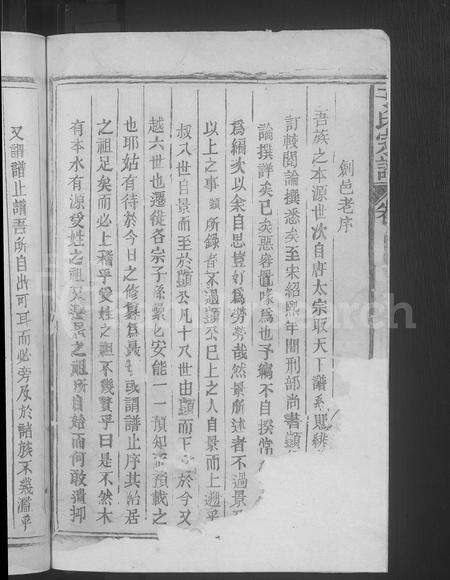 王氏宗譜 卷
劍邑老序
吾族之本源世次自唐太宗取天下譜系賜緋
訂較閱論撰悉矣至宋紹熙年間刑部尚書顯
論撰詳矣已矣惡容置喙為也予竊不自揆常
為編次以余自思豈好為勞勞哉然景所述者不過景
以上之事顯所錄者不過顯公巳上之人自景而上邇乎
叔八世自景而至於顯公凡十八世由顯而下 於今又
越六世也遷徙各宗子孫繁乜安能一一預知 預載之
也耶姑有待於今日之修輯為長乜或謂譜止序其始居
之祖足矣而必上稽乎受姓之祖不幾贅乎曰是不然木
有本水有源受姓之祖又 之祖所自始而何敢遺抑
又謂譜止譜吾所自出可耳而必旁及於諸族不幾濫乎